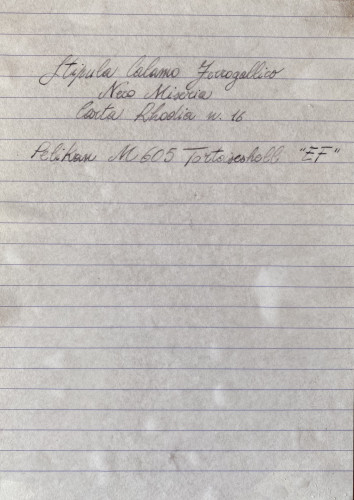 Stipula Calamo Ferrogallico
Nero Miseria
Carta Rhodia n. 16
Pelikan M 605 Tortoiseshell "EF"